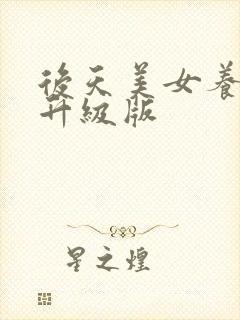 後天美女養
升級版
星之煌